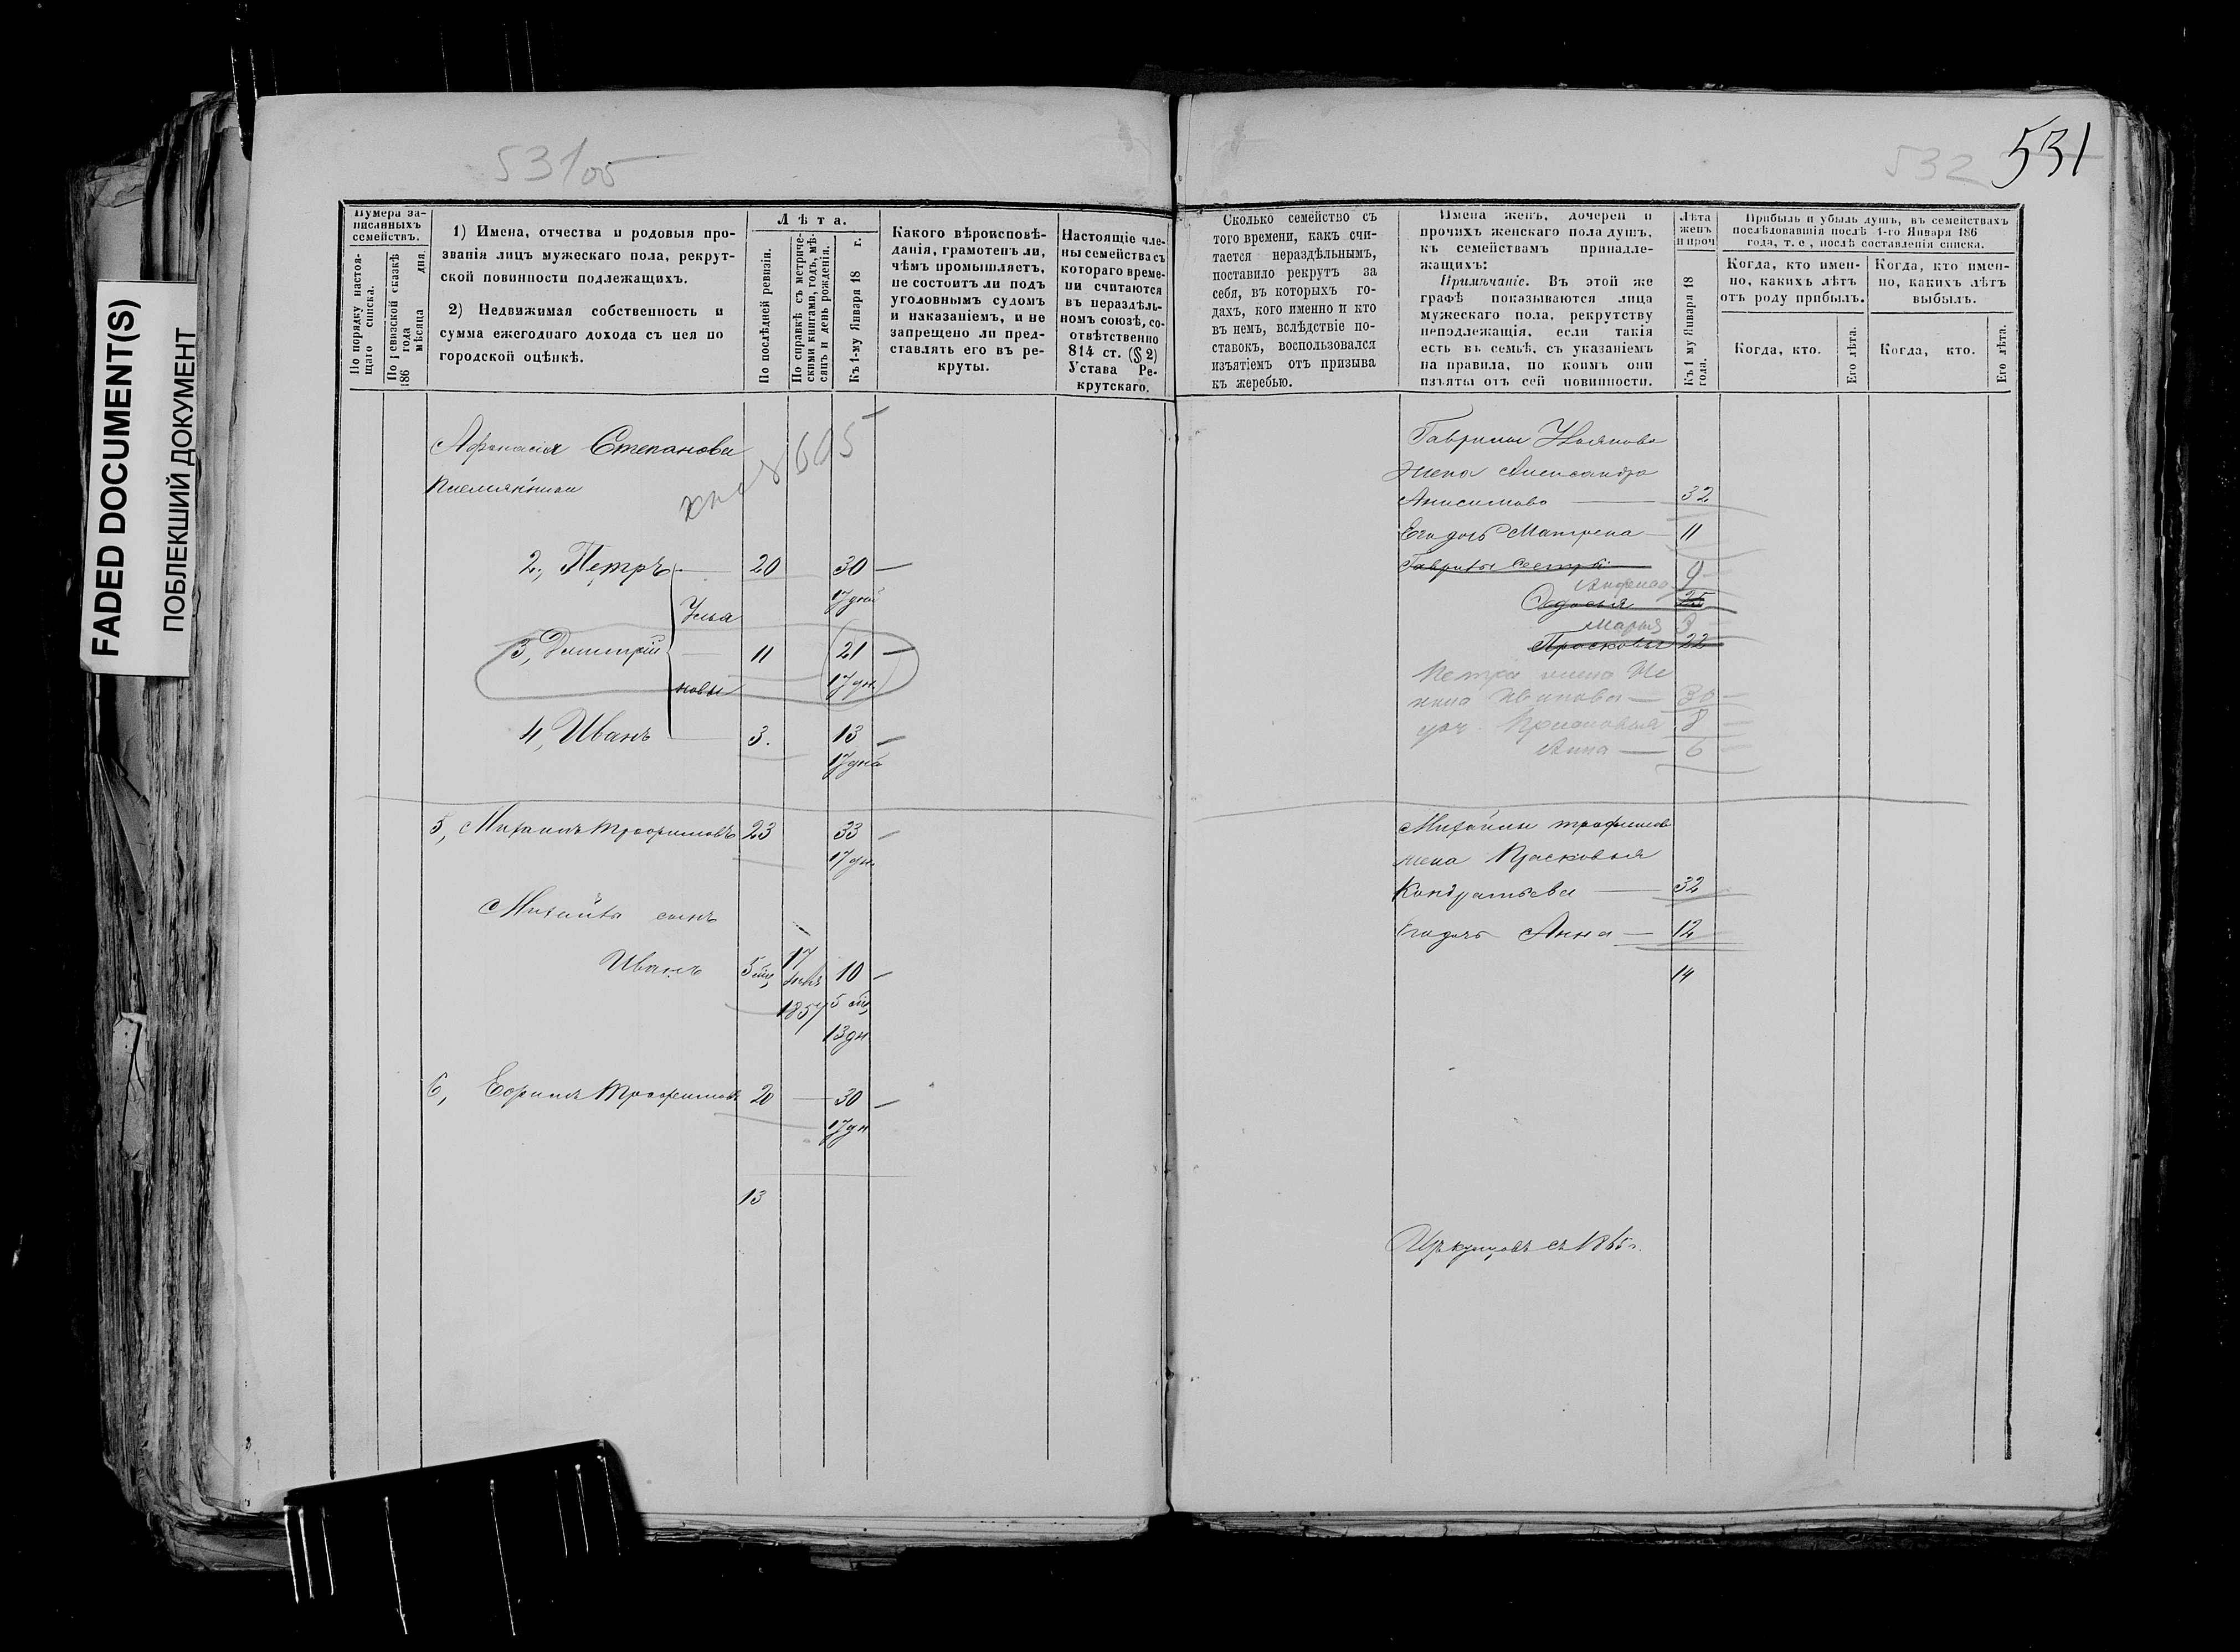 FADED DOCUMENT(S)
ПОБЛЕКШИЙ ДОКУМЕНТ
531 об
Нумера за-
писанныхъ
семействъ.
По порядку настоя-
щаго списка.
По ревизской сказкѣ
186 года
мѣсяца дня.
1) Имена, отчества и родовыя про-
званія лицъ мужескаго пола, рекрут-
ской повинности подлежащихъ.
2) Недвижимая собственность и
сумма ежегоднаго дохода съ нея по
городской оцѣнкѣ.
Лѣта.
По послѣдней ревизіи.
По справкѣ съ метриче-
скими книгами, годъ, мѣ-
сяцъ и день рожденія.
Къ 1-му Января 18 г.
Какого вѣроисповѣ-
данія, грамотенъ ли,
чѣмъ промышляетъ,
не состоитъ ли подъ
уголовнымъ судомъ
и наказаніемъ, и не
запрещено ли пред-
ставлять его въ ре-
круты.
Настоящіе чле-
ны семейства съ
котораго време-
ни считаются
въ нераздѣль-
номъ союзѣ, со-
отвѣтственно
814 ст. (§ 2)
Устава Ре-
крутскаго.
Афанасія Степанова
племянники
2, Петръ 20 30
17 дней
Улья
3, Димитрій 11 21
17 дн
новы
4, Иванъ 3. 13
17 дней
5, Михаилъ Трофимовъ 23 33
17 дн.
Михайлы сынъ
Иванъ 5 мц 17 10
1857 5 мц
13 дн
6, Ефимъ Трофимовъ 20 30
17 дн
13
532 531
Сколько семейство съ
того времени, какъ счи-
тается нераздѣльнымъ,
поставило рекрутъ за
себя, въ которыхъ го-
дахъ, кого именно и кто
въ немъ, вслѣдствіе по-
ставокъ, воспользовался
изъятіемъ отъ призыва
къ жеребью.
Имена женъ, дочерей и
прочихъ женскаго пола душъ,
къ семействамъ принадле-
жащихъ:
Примѣчаніе. Въ этой же
графѣ показываются лица
мужескаго пола, рекрутству
неподлежащія, если такія
есть въ семьѣ, съ указаніемъ
на правила, по коимъ они
изъяты отъ сей повинности.
Лѣта
женъ
и проч
Къ 1 му Января 18
года.
Прибыль и убыль душъ, въ семействахъ
послѣдовавшія послѣ 1-го Января 186
года, т. е., послѣ составленія списка.
Когда, кто имен-
но, какихъ лѣтъ
отъ роду прибылъ.
Когда, кто имен-
но, какихъ лѣтъ
выбылъ.
Когда, кто.
Его лѣта.
Когда, кто.
Его лѣта.
Гаврилы Ульянова
жена Александра
Анисимова 32
Его дочь Матрена 11
Гаврилы сестры 9
Федосья 25
Марья 3
Прасковья 22
Петра жена
Иванова 30
доч. Прасковья 8
Анна 6
Михайлы Трофимов
жена Прасковья
Кондратьева 32
Его дочь Анна 12
14
Изъ купцовъ съ 1865 г.